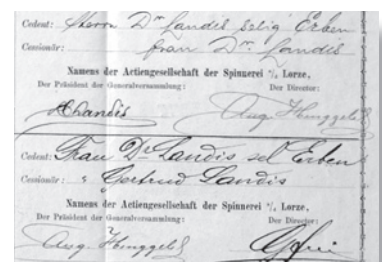 Cedent: Herrn Dr Landis selig Erben
Cessionär: Frau Dr. Landis
Namens der Actiengesellschaft der Spinnerei a/ Lorze,
Der Präsident der Generalversammlung: Der Director:
HLandis Aug. Henggeler
Cedent: Frau Dr Landis sel Erben
Cessionär: " Gertrud Landis
Namens der Actiengesellschaft der Spinnerei a/ Lorze,
Der Präsident der Generalversammlung: Der Director:
Aug. Henggeler